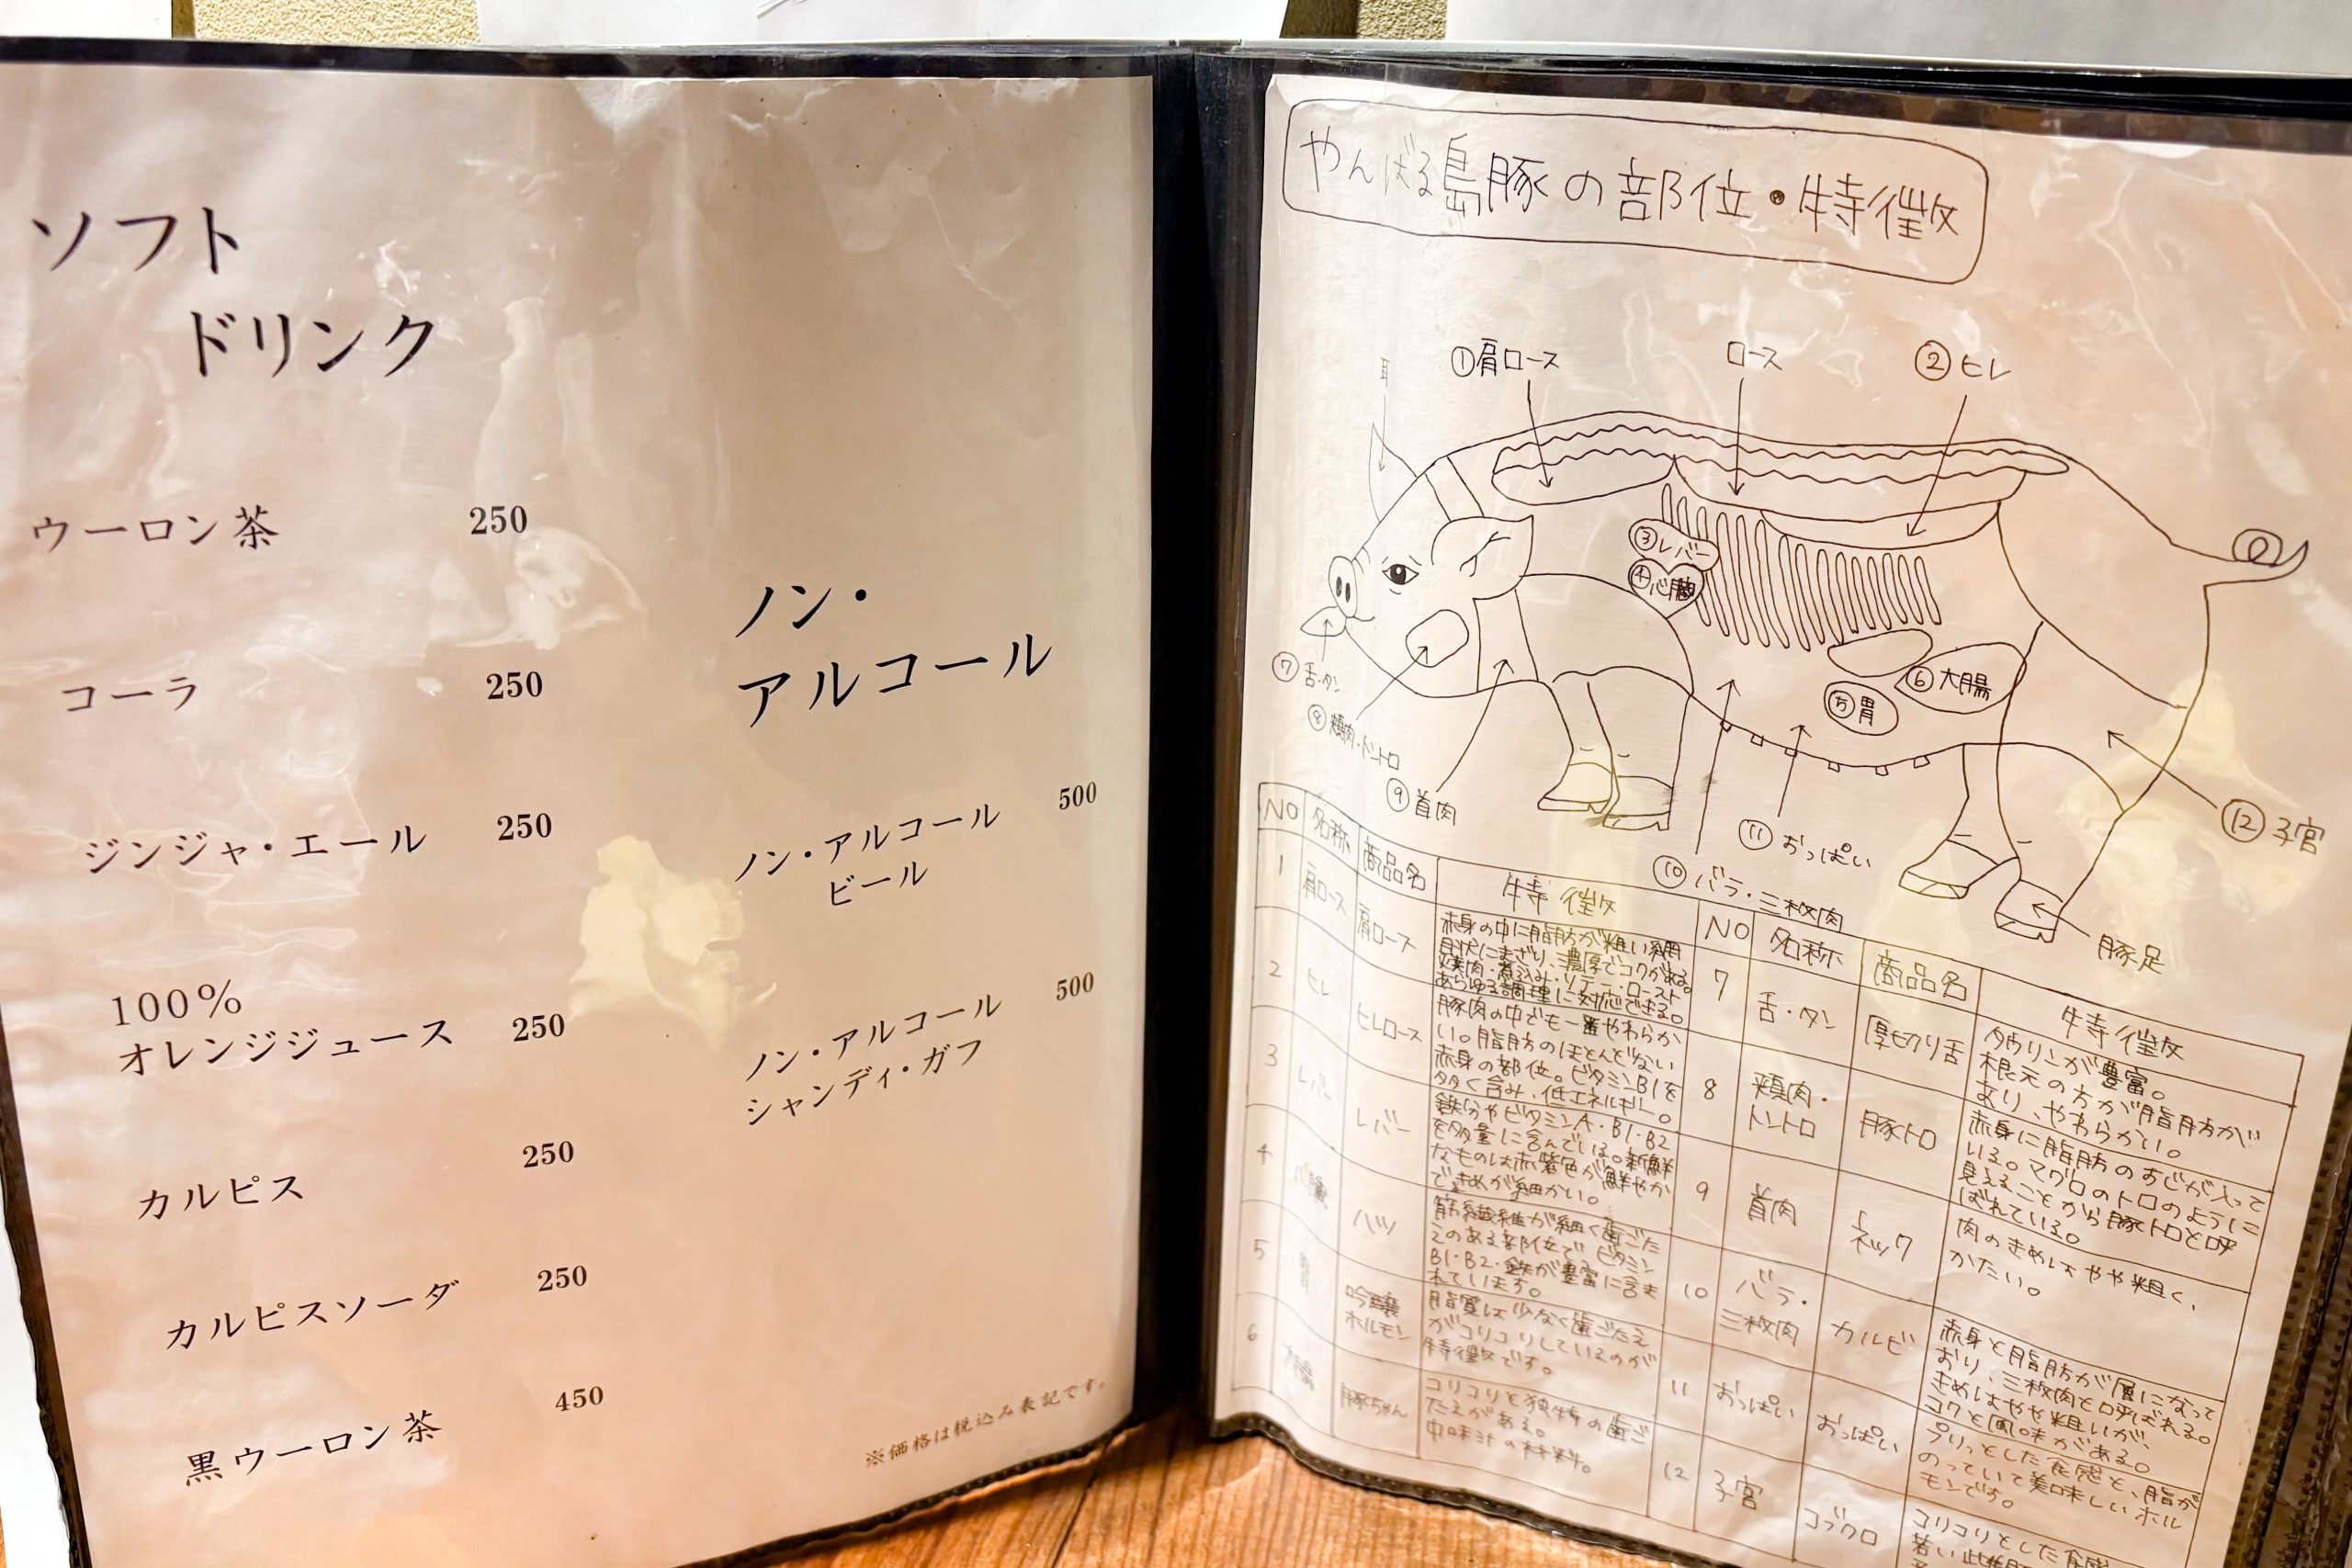 ソフト
ドリンク
ウーロン茶 250
コーラ 250
ジンジャ・エール 250
100%
オレンジジュース 250
カルピス 250
カルピスソーダ 250
黒ウーロン茶 450
ノン・
アルコール
ノン・アルコール 500
ビール
ノン・アルコール 500
シャンディ・ガフ
※価格は税込み表記です。
やんばる島豚の部位・特徴
耳
①肩ロース
ロース
②ヒレ
③レバー
④心臓
⑤胃
⑥大腸
⑦舌・タン
⑧頬肉・トントロ
⑨首肉
⑩バラ・三枚肉
⑪おっぱい
⑫子宮
豚足
NO 名称 商品名 特徴
1 肩ロース 肩ロース
赤身の中に脂肪が粗い網
目状にまざり、濃厚でコクがある。
焼肉・煮込み・ソテー・ロースト
あらゆる調理に対応できる。
2 ヒレ ヒレロース
豚肉の中でも一番やわらか
い。脂肪のほとんどない
赤身の部位。ビタミンB1を
多く含み、低エネルギー。
3 レバー レバー
鉄分やビタミンA・B1・B2
を多量に含んでいる。新鮮
なものは赤紫色が鮮やか
できめが細かい。
4 心臓 ハツ
筋繊維が細く歯ごた
えのある部位で、ビタミン
B1・B2・鉄が豊富に含ま
れています。
5 胃 吟醸
ホルモン
脂質は少なく歯ごたえ
がコリコリしているのが
特徴です。
6 大腸 豚ちゃん
コリコリと独特の歯ご
たえがある。
中味汁の材料。
NO 名称 商品名 特徴
7 舌・タン 厚切り舌
タウリンが豊富。
根元の方が脂肪が
あり、やわらかい。
8 頬肉・
トントロ 豚トロ
赤身に脂肪のすじが入って
いる。マグロのトロのように
見えることから豚トロと呼
ばれている。
9 首肉 ネック
肉のきめはやや粗く、
かたい。
10 バラ・
三枚肉 カルビ
赤身と脂肪が層になって
おり、三枚肉と呼ばれる。
きめはやや粗いが、
コクと風味がある。
11 おっぱい おっぱい
プリっとした食感と、脂が
のっていて美味しいホル
モンです。
12 子宮 コブクロ
コリコリとした食感